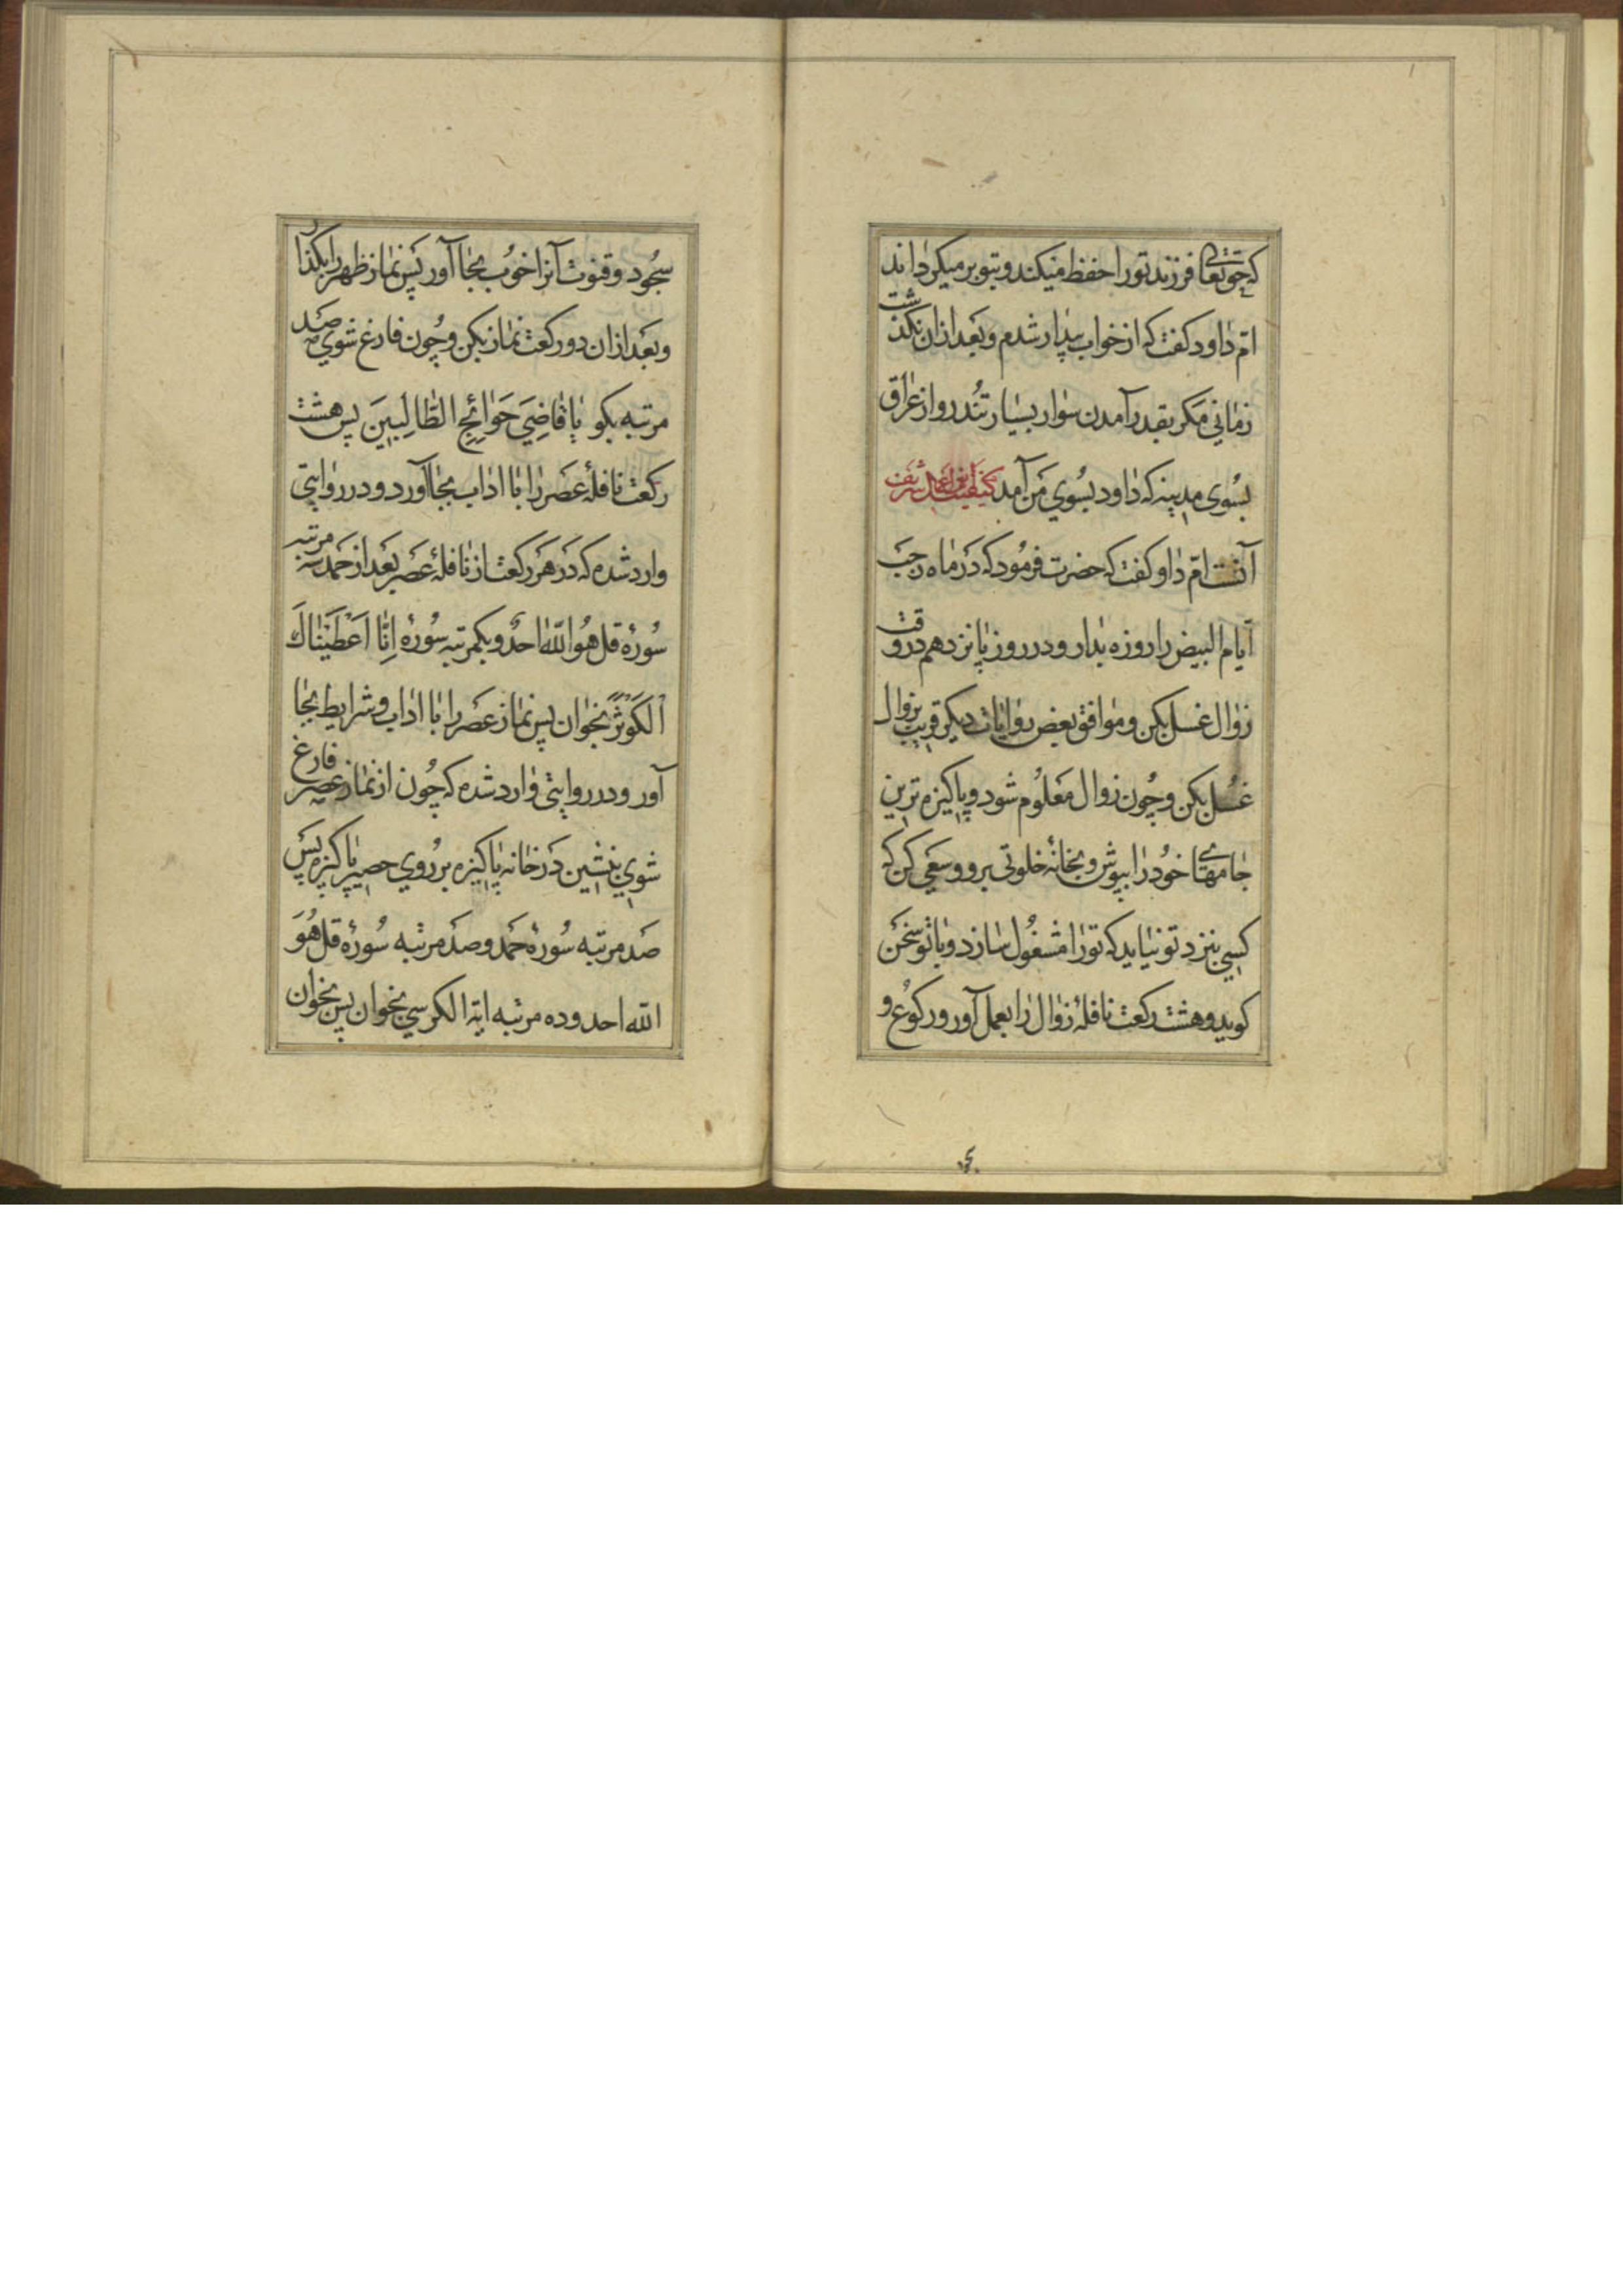 که حق تعالی فرزند تو را حفظ میکند و بتو بر میکرداند
ام داود کفت که از خواب بیدار شدم و بعد از ان نکذشت
زمانی مکر بقدر آمدن سوار بسیار تند رو از عراق
بسوی مدینه که داود بسوی من آمد کیفیت این عمل شریف
آنست ام داود کفت که حضرت فرمود که در ماه رجب
ایام البیض را روزه بدار و در روز پانزدهم در وقت
زوال غسل بکن و موافق بعض روایات دیکر قریب بزوال
غسل بکن و چون زوال معلوم شود و پاکیزه ترین
جامهای خود را بپوش و بخانه خلوتی برو و سعی کن که
کسی بنزد تو نیاید که تو را مشغول سازد و با تو سخن
کوید و هشت رکعت نافلهٔ زوال را بعمل آور و رکوع و
سجود و قنوت آنرا خوب بجا آور پس نماز ظهر را بکذار
و بعد از ان دو رکعت نماز بکن و چون فارغ شوی صد
مرتبه بکو یا قاضِیَ حَوائِجِ الطّالِبینَ پس هشت
رکعت نافلهٔ عصر را با اداب بجا آورد و در روایتی
وارد شده که در هر رکعت از نافلهٔ عصر بعد از حمد سه مرتبه
سورهٔ قل هو اللّه احد و یکمرتبه سورهٔ اِنّا اَعْطَیْناکَ
الْکَوْثَرْ بخوان پس نماز عصر را با اداب و شرایط بجا
آور و در روایتی وارد شده که چون از نماز عصر فارغ
شوی بنشین در خانه پاکیزه بر روی حصیر پاکیزه پس
صد مرتبه سورهٔ حمد و صد مرتبه سورهٔ قل هُوَ
اللّه احد و ده مرتبه ایة الکرسی بخوان پس بخوان